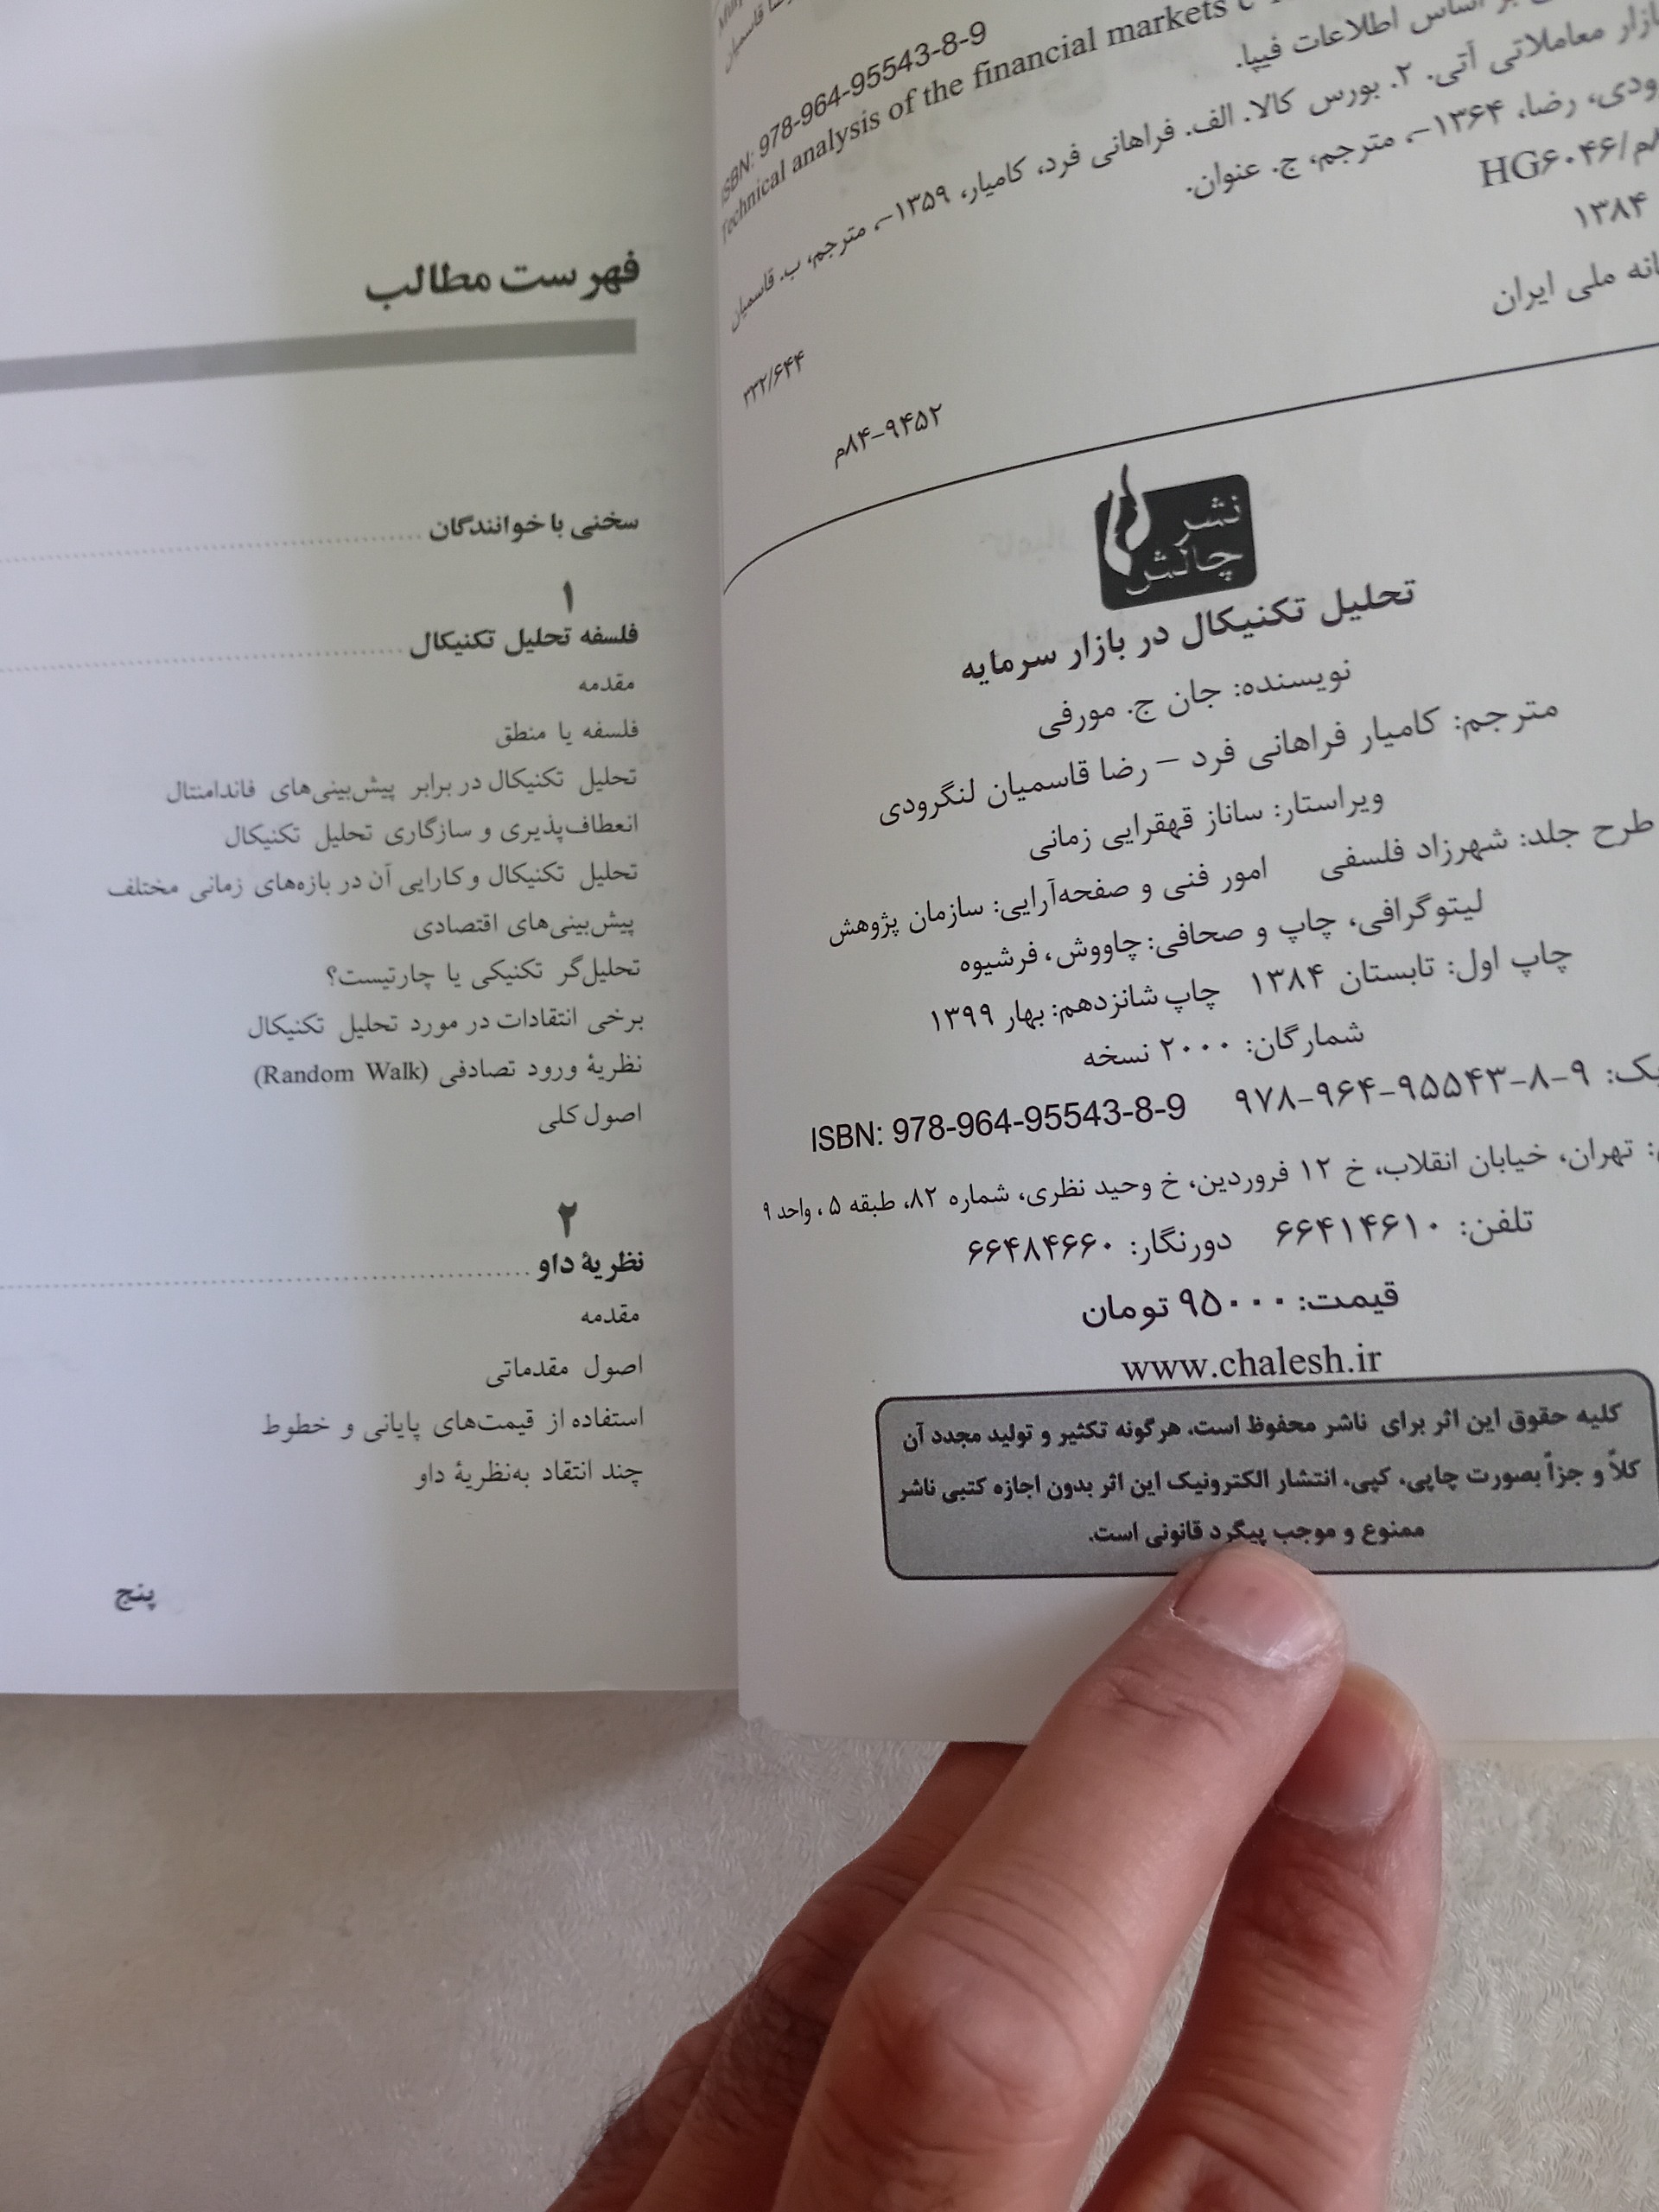 ISBN: 978-964-95543-8-9
Technical analysis of the financial markets
اساس اطلاعات فیپا.
بازار معاملاتی آتی. ۲. بورس کالا. الف. فراهانی فرد، کامیار، ۱۳۵۹-، مترجم، ب. قاسمیان
رضا، ۱۳۶۴-، مترجم، ج. عنوان.
HG۶۰۴۶/
۱۳۸۴
۳۳۲/۶۴۴
ملی ایران
م۸۴-۹۴۵۲
نشر
چالش
تحلیل تکنیکال در بازار سرمایه
نویسنده: جان ج. مورفی
مترجم: کامیار فراهانی فرد – رضا قاسمیان لنگرودی
ویراستار: ساناز قهقرایی زمانی
طرح جلد: شهرزاد فلسفی امور فنی و صفحه‌آرایی: سازمان پژوهش
لیتوگرافی، چاپ و صحافی: چاووش، فرشیوه
چاپ اول: تابستان ۱۳۸۴ چاپ شانزدهم: بهار ۱۳۹۹
شمارگان: ۲۰۰۰ نسخه
۹۷۸-۹۶۴-۹۵۵۴۳-۸-۹ ISBN: 978-964-95543-8-9
تهران، خیابان انقلاب، خ ۱۲ فروردین، خ وحید نظری، شماره ۸۲، طبقه ۵ ، واحد ۹
تلفن: ۶۶۴۱۴۶۱۰ دورنگار: ۶۶۴۸۴۶۶۰
قیمت: ۹۵۰۰۰ تومان
www.chalesh.ir
کلیه حقوق این اثر برای ناشر محفوظ است. هرگونه تکثیر و تولید مجدد آن
کلاً و جزاً بصورت چاپی، کپی، انتشار الکترونیک این اثر بدون اجازه کتبی ناشر
ممنوع و موجب پیگرد قانونی است.
فهرست مطالب
سخنی با خوانندگان
۱
فلسفه تحلیل تکنیکال
مقدمه
فلسفه یا منطق
تحلیل تکنیکال در برابر پیش‌بینی‌های فاندامنتال
انعطاف‌پذیری و سازگاری تحلیل تکنیکال
تحلیل تکنیکال و کارایی آن در بازه‌های زمانی مختلف
پیش‌بینی‌های اقتصادی
تحلیل‌گر تکنیکی یا چارتیست؟
برخی انتقادات در مورد تحلیل تکنیکال
نظریهٔ ورود تصادفی (Random Walk)
اصول کلی
۲
نظریهٔ داو
مقدمه
اصول مقدماتی
استفاده از قیمت‌های پایانی و خطوط
چند انتقاد به‌نظریهٔ داو
پنج